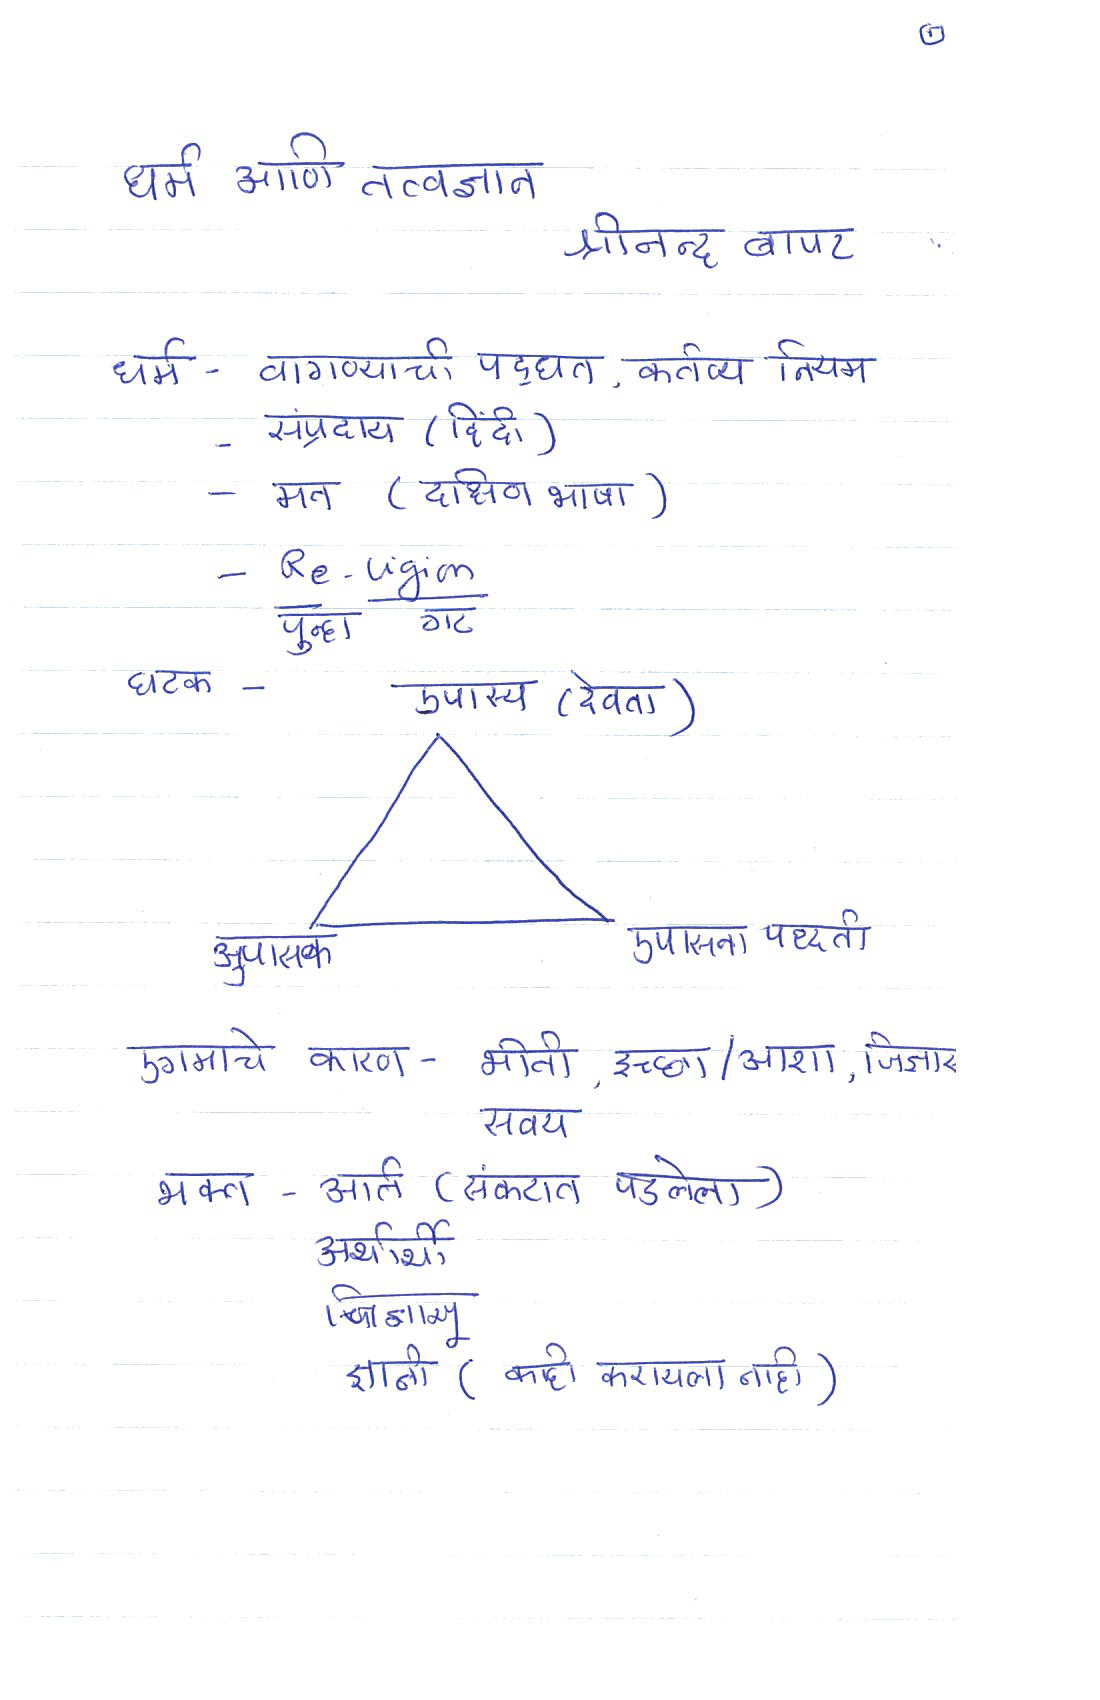 १
धर्म आणि तत्वज्ञान
श्रीनन्द बापट
धर्म - वागण्याची पद्धत, कर्तव्य नियम
- संप्रदाय (हिंदी)
- मत (दक्षिण भाषा)
- Re-ligion
पुन्हा गट
घटक - उपास्य (देवता)
अुपासक उपासना पध्दती
उगमाचे कारण - भीती, इच्छा/आशा, जिज्ञास
सवय
भक्त - आर्त (संकटात पडलेला)
अर्थार्थी
जिज्ञासू
ज्ञानी (काही करायला नाही)